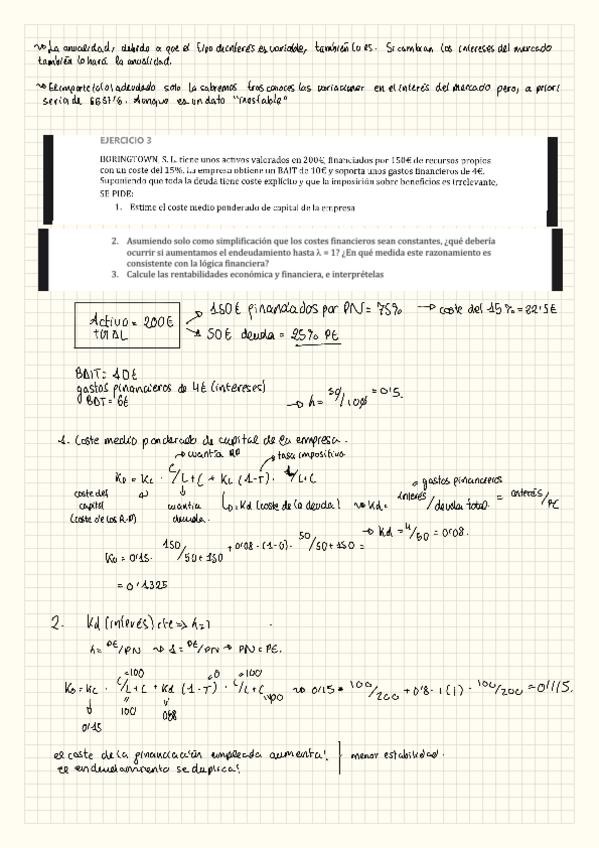 ~> La anualidad, debido a que el tipo de interés es variable, también lo es. Si cambian los intereses del mercado
también lo hará la anualidad.
~> El importe total adeudado solo lo sabremos tras conocer las variaciones en el interés del mercado pero, a priori
sería de 6657'6. Aunque es un dato "inestable"
EJERCICIO 3
BORINGTOWN, S. L. tiene unos activos valorados en 200€, financiados por 150€ de recursos propios
con un coste del 15%. La empresa obtiene un BAIT de 10€ y soporta unos gastos financieros de 4€.
Suponiendo que toda la deuda tiene coste explícito y que la imposición sobre beneficios es irrelevante,
SE PIDE:
1. Estime el coste medio ponderado de capital de la empresa
2. Asumiendo solo como simplificación que los costes financieros sean constantes, ¿qué debería
ocurrir si aumentamos el endeudamiento hasta λ = 1? ¿En qué medida este razonamiento es
consistente con la lógica financiera?
3. Calcule las rentabilidades económica y financiera, e interprételas
Activo = 200€
TOTAL
150€ financiados por PN = 75% → coste del 15% = 22'5€
50€ deuda = 25% PE
BAIT: 10€
gastos financieros de 4€ (intereses)
BDT = 6€
→ h = 50/100 = 0'5.
1. Coste medio ponderado de capital de la empresa.
→ cuantía RP → tasa impositiva
Ko = Kc · C/L+C + KL (1-T) · L/L+C
coste del
capital
(coste de los R.P)
cuantía
deuda.
Kd (coste de la deuda) ~> Kd = interés/deuda total = interés/PE
gastos financieros
→ Kd = 4/50 = 0'08.
Ko = 0'15 · 150/50+150 + 0'08 · (1-0) · 50/50+150 =
= 0'1325
2. Kd (interés) cte => h=1
h = PE/PN ~> 1 = PE/PN → PN = PE.
=100 =0 =100
Ko = Kc · C/L+C + Kd (1-T) · C/L+C ~> 0'15 · 100/200 + 0'8 · 1(1) · 100/200 = 0'1115.
0'15 100
el coste de la financiación empleada aumenta!
el endeudamiento se duplica! menor estabilidad.